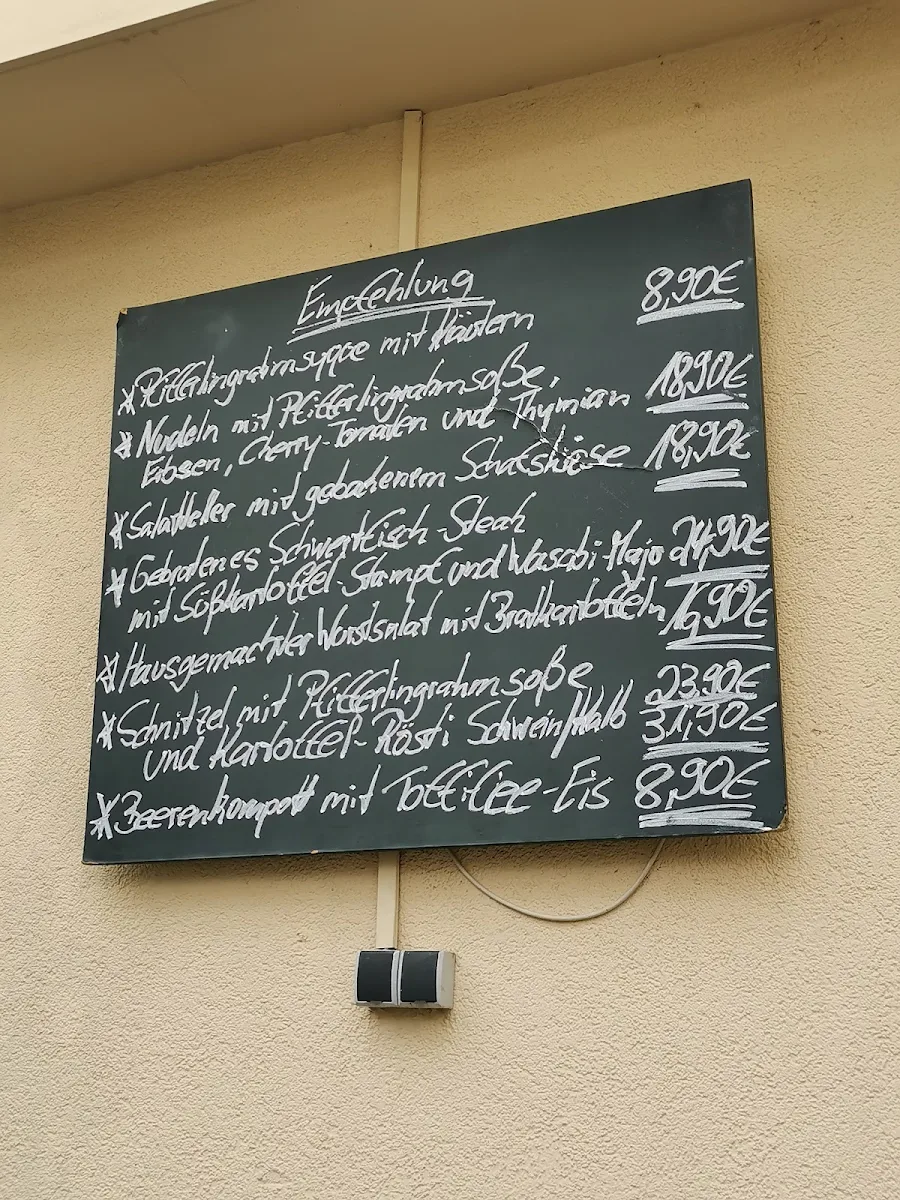 Empfehlung
* Pfifferlingrahmsuppe mit Kräutern 8,90€
* Nudeln mit Pfifferlingrahmsoße, 18,90€
Erbsen, Cherry-Tomaten und Thymian
* Salatteller mit gebackenem Schafskäse 18,90€
* Gebratenes Schwertfisch-Steak
mit Süßkartoffel-Stampf und Wasabi-Majo 24,90€
* Hausgemachter Wurstsalat mit Bratkartoffeln
* Schnitzel mit Pfifferlingrahmsoße 23,90€
und Kartoffel-Rösti Schwein/Kalb 31,90€
* Beerenkompott mit Toffifee-Eis 8,90€